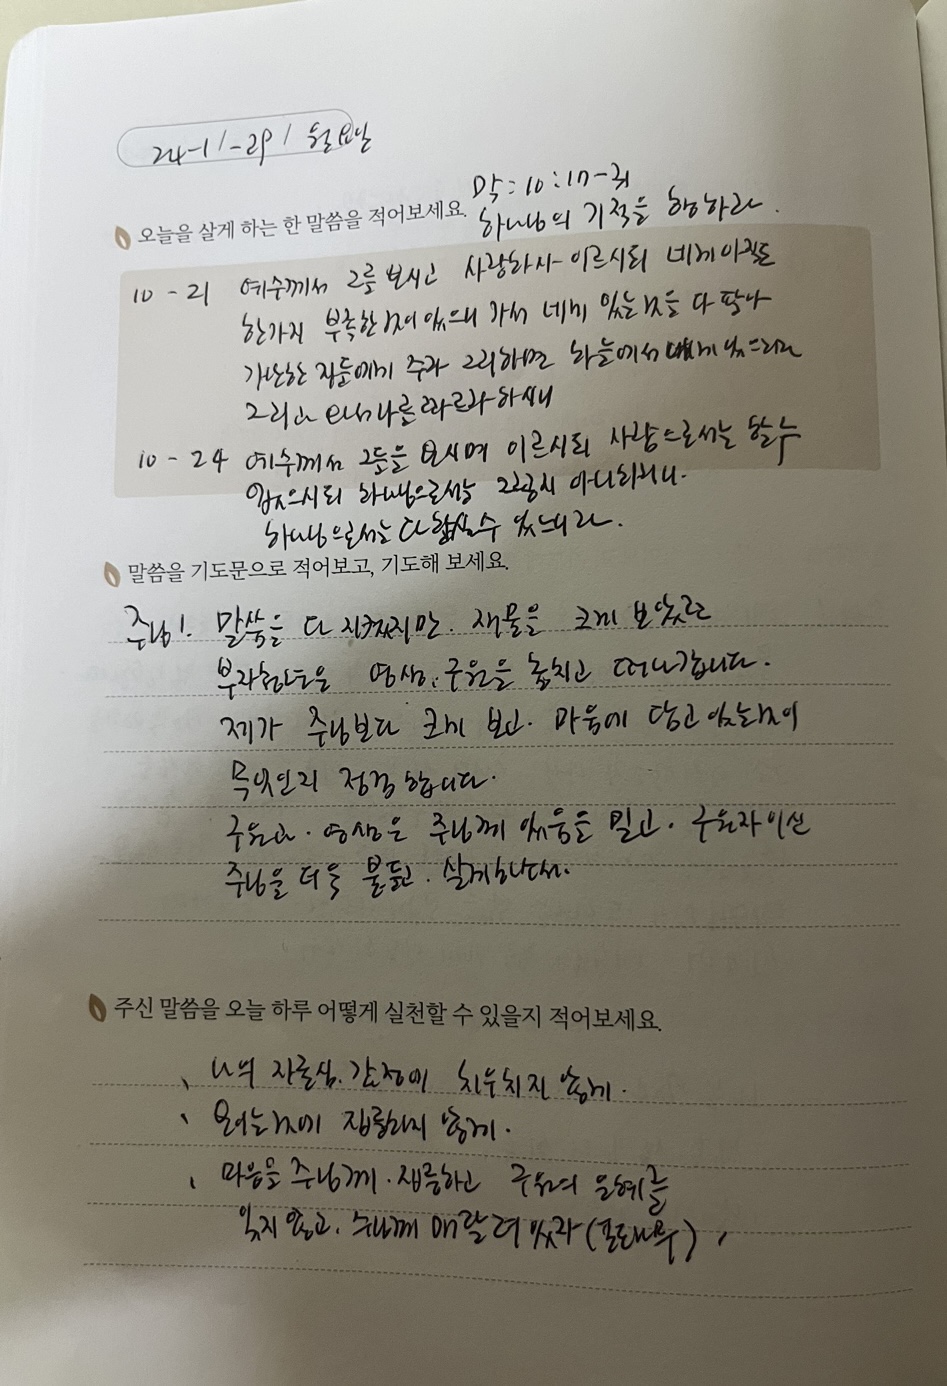 24-1/-29 / 월요일
막:10:17-31
오늘을 살게 하는 한 말씀을 적어보세요.
하나님의 기적을 행하라.
10 - 21 예수께서 그를 보시고 사랑하사 이르시되 네게 아직도
한가지 부족한 것이 있으니 가서 네게 있는것을 다 팔아
가난한 자들에게 주라 그리하면 하늘에서 네게 있으리라
그리고 와서 나를 따르라 하시니
10 - 24 예수께서 그들을 보시며 이르시되 사람으로서는 할수
없으시되 하나님으로서는 그렇지 아니하니.
하나님으로서는 다 하실수 있느니라.
말씀을 기도문으로 적어보고, 기도해 보세요.
주님!. 말씀을 다 지켰지만. 재물을 크게 보았른
부자청년은 영생, 구원을 놓치고 떠나갑니다.
제가 주님보다 크게 보고. 마음에 담고 있는것이
무엇인지 점검합니다.
구원과. 영생은 주님께 있음을 믿고. 구원자이신
주님을 더욱 붙들고. 살게하소서.
주신 말씀을 오늘 하루 어떻게 실천할 수 있을지 적어보세요.
、 나의 자존심. 감정에 치우치지 않게.
、 보이는것에 집중하지 않게.
、 마음을 주님께. 집중하고 구원의 은혜를
잊지 않고. 주님께 매달려 있자 (포도나무)